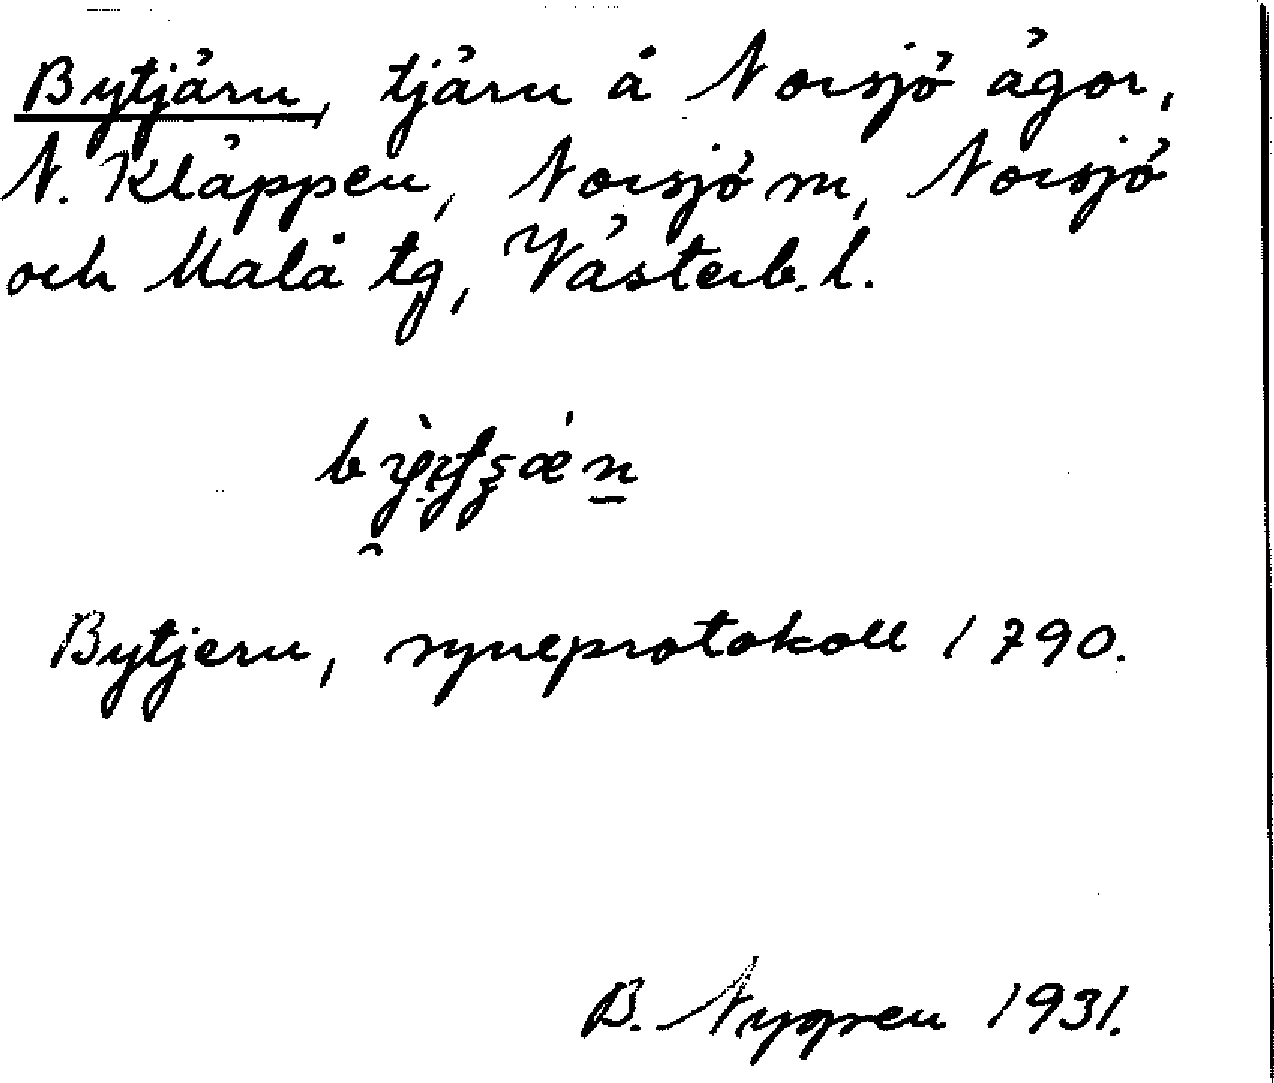 Bytjärn, tjärn å Norsjö ägor,
N. Kläppen, Norsjö sn, Norsjö
och Malå tg, Västerb. l.
Bytjern, syneprotokoll 1790.
B. Nygren 1931.